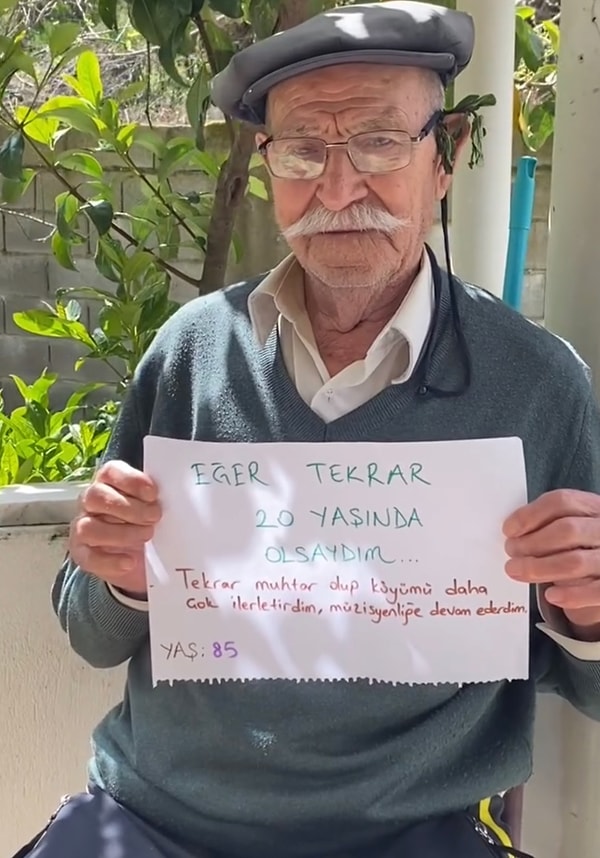 EĞER TEKRAR
20 YAŞINDA
OLSAYDIM...
Tekrar muhtar olup köyümü daha
Çok ilerletirdim, müzisyenliğe devam ederdim.
YAŞ: 85